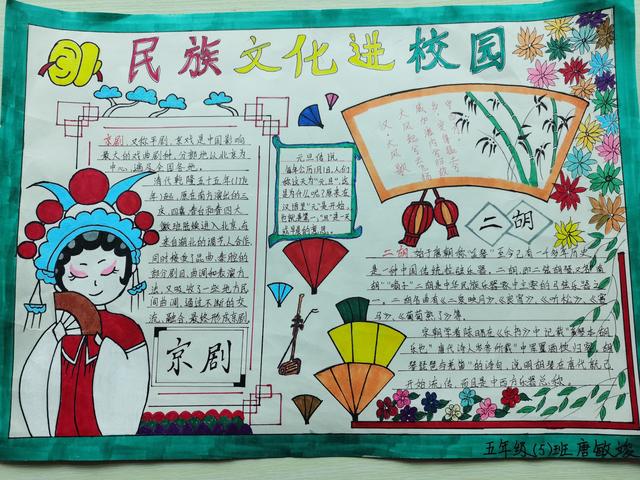 民族文化进校园
京剧，又称平剧，京戏是中国影响
最大的戏曲剧种，分布地以北京为
中心，遍及全国各地。
清代乾隆五十五年(179
0年)起，原在南方演出的三
庆、四喜、春台和春四大
徽班陆续进入北京，在
来自湖北的汉艺人合作，
同时接受了昆曲、秦腔的
部分剧目、曲调和表演方
法，又吸收了一些地方民
间曲调，通过不断的交
流、融合，最终形成京剧。
京剧
元旦传说
每年公历1月1日，人们
称这天为“元旦”，这
是为什么呢？原来在
汉语里“元”是开始，
汉·大风歌
大风起兮云飞扬
威加海内兮
二胡
二胡始于唐朝称“奚琴”至今已有一千多年历史
是一种中国传统拉弦乐器。二胡，即二弦胡琴，又名“南
胡”“嗡子”二胡是中华民族乐器家族中主要的弓弦乐器之
一。二胡名曲有《二泉映月》《良宵》、《听松》、《赛
马》、《葡萄熟了》等。
宋朝学者陈旸在《乐书》中记载“奚琴本胡
乐也”唐代诗人岑参所载“中军置酒饮归客，胡
琴琵琶与羌笛”的诗句，说明胡琴在唐代就已
开始流传，而且是中西方乐器总称。
五年级(5)班 唐敏